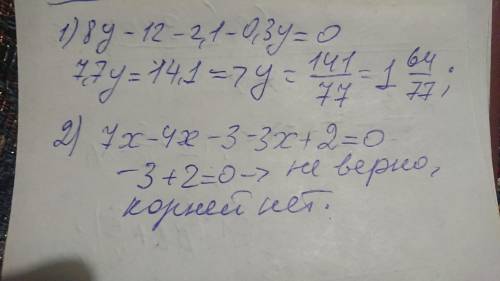 1) 8y - 12 - 2,1 - 0,3y = 0
7,7y = 14,1 => y = 141/77 = 1 64/77;
2) 7x - 4x - 3 - 3x + 2 = 0
-3 + 2 = 0 -> не верно,
корней нет.